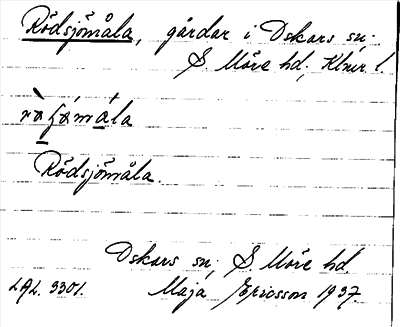 Rödsjömåla, gårdar i Oskars sn.
S. Möre hd, Klmr l.
Rödsjömåla.
Oskars sn, S. Möre hd.
LAL. 3301. Maja Ericsson 1937.